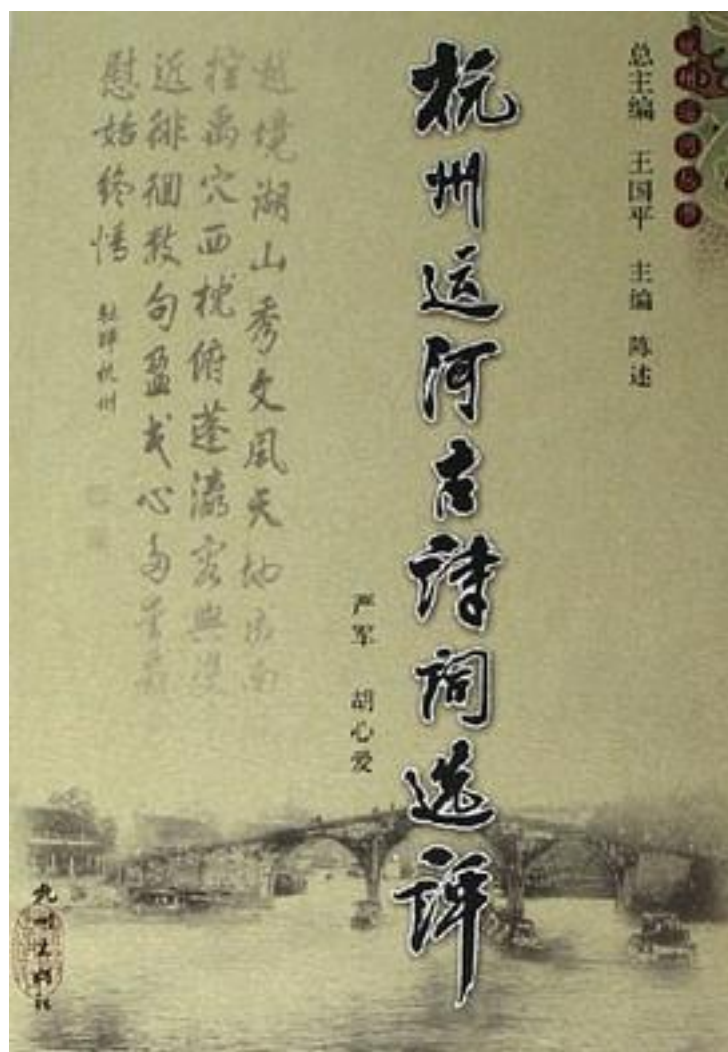 杭州运河丛书
总主编 王国平 主编 陈述
杭州运河古诗词选评
严军 胡心爱
越境湖山秀文风天地成南
控禹穴西枕俯蓬瀛容与
近徘徊数句盈我心多
慰始终情 驻跸杭州
杭州出版社